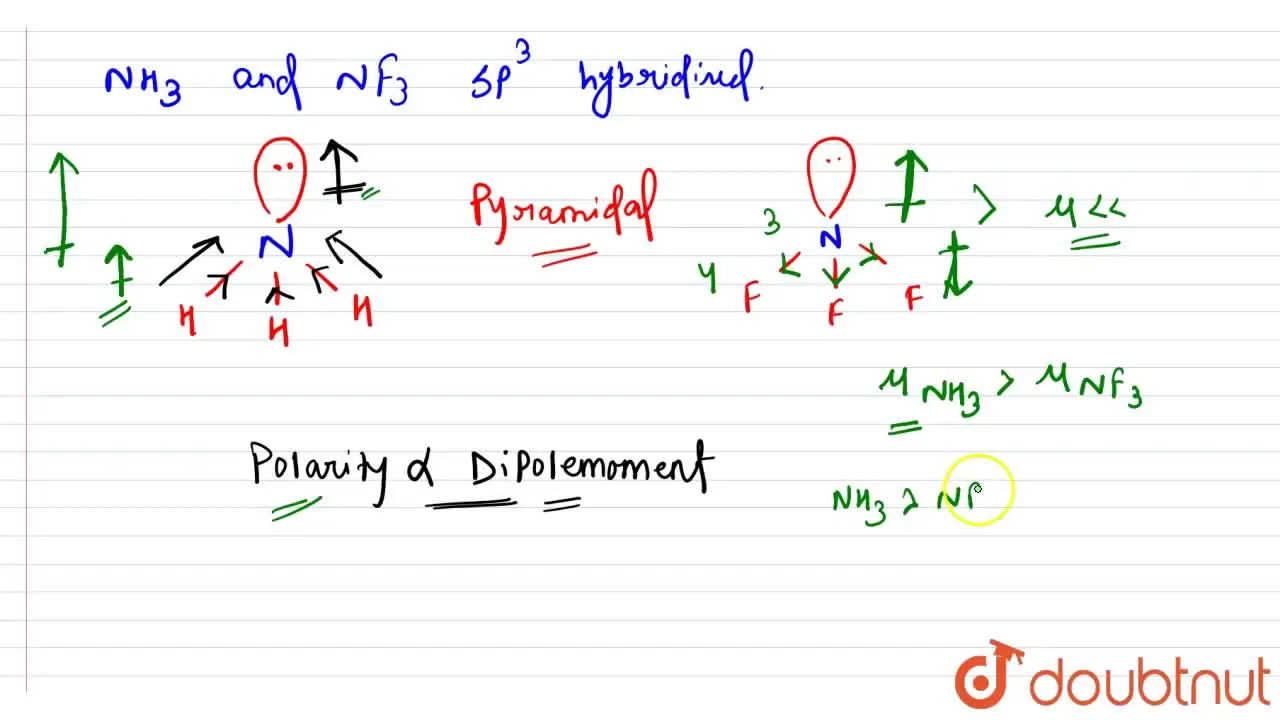 NH3 and NF3 sp3 hybridized.
N
H H H
Pyramidal
3
4
N
F F F
> μ<<
μ NH3 > μ NF3
Polarity α Dipolemoment
NH3 > NF
doubtnut